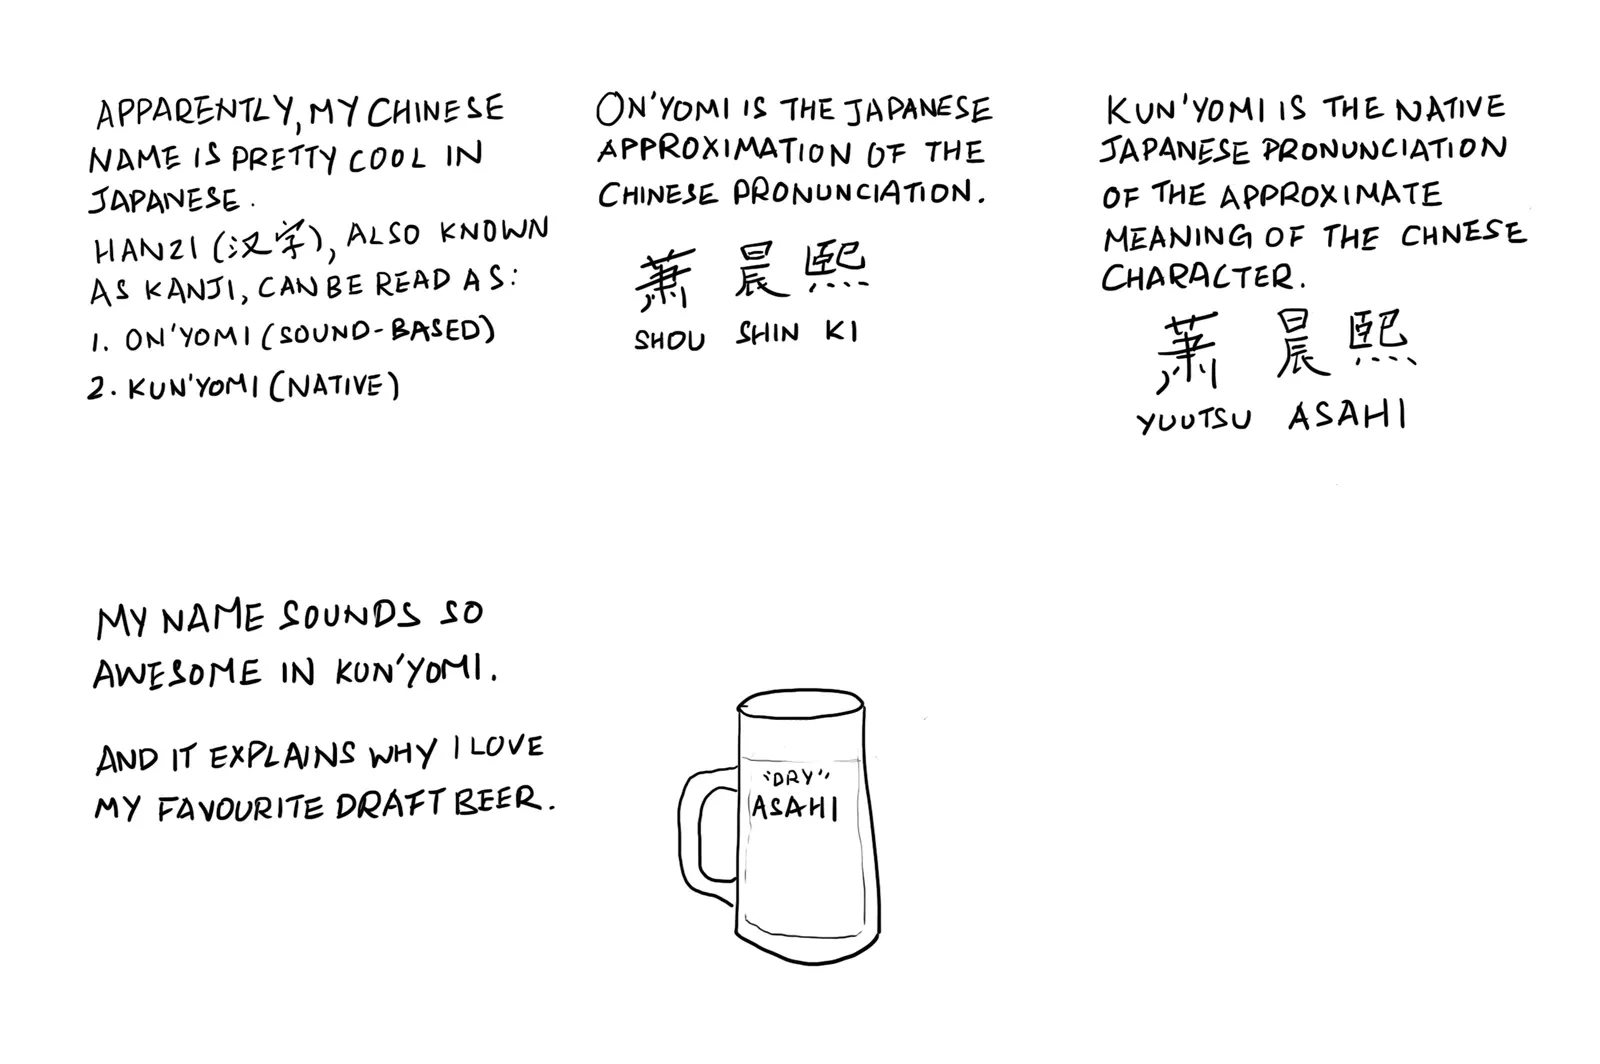 APPARENTLY, MY CHINESE
NAME IS PRETTY COOL IN
JAPANESE.
HANZI (汉字), ALSO KNOWN
AS KANJI, CAN BE READ AS:
1. ON'YOMI (SOUND-BASED)
2. KUN'YOMI (NATIVE)
ON'YOMI IS THE JAPANESE
APPROXIMATION OF THE
CHINESE PRONUNCIATION.
萧 晨 熙
SHOU SHIN KI
KUN'YOMI IS THE NATIVE
JAPANESE PRONUNCIATION
OF THE APPROXIMATE
MEANING OF THE CHNESE
CHARACTER.
萧 晨 熙
YUUTSU ASAHI
MY NAME SOUNDS SO
AWESOME IN KUN'YOMI.
AND IT EXPLAINS WHY I LOVE
MY FAVOURITE DRAFT BEER.
"DRY"
ASAHI